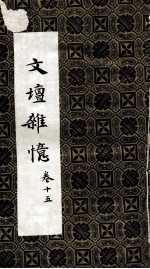 文壇雜憶
卷十五